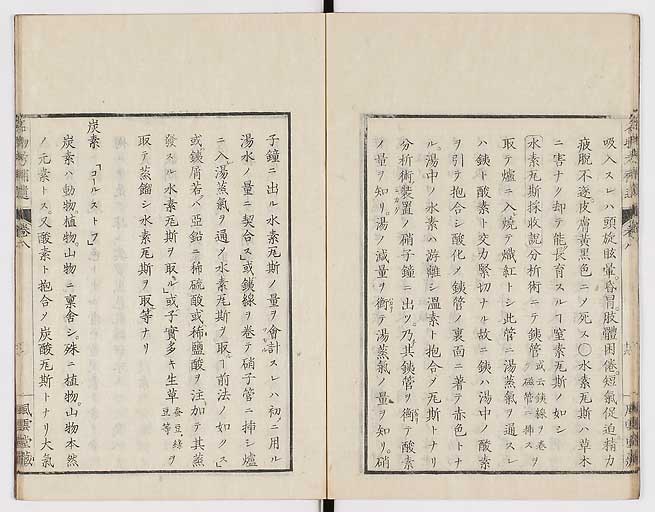 吸入スレハ頭旋眩暈昏冒肢體困倦短氣促迫精力
疲脱不遂皮膚黃黑色ニノ死ス〇水素瓦斯ハ草木
ニ害ナク却テ能長育スルヿ窒素瓦斯ノ如シ
水素瓦斯採收說分析術ニテ銕管ヲ
或云銕線ヲ卷ヲ
磁管ニ挿ス
取テ爐ニ入燒テ熾紅トシ此管ニ湯蒸氣ヲ通スレ
ハ銕ト酸素ト交力緊切ナル故ニ銕ハ湯中ノ酸素
ヲ引テ抱合シ酸化ノ銕管ノ裏面ニ著テ赤色トナ
ル湯中ノ水素ハ游離シ溫素ト抱合ノ瓦斯トナリ
分析術裝置ノ硝子鐘ニ出ツ乃其銕管ヲ衡テ酸素
ノ量ヲ知リ湯ノ減量ヲ衡テ湯蒸氣ノ量ヲ知リ硝
子鐘ニ出ル水素瓦斯ノ量ヲ會計スレハ初ニ用ル
湯水ノ量ニ契合ス或銕線ヲ卷テ硝子管ニ挿シ爐
ニ入湯蒸氣ヲ通ノ水素瓦斯ヲ取ヿ前法ノ如クス
或銕屑若ハ亞鉛ニ稀硫酸或稀鹽酸ヲ注加テ其蒸
發スル水素瓦斯ヲ取ル或子實多キ生草
蚕豆綠豆等ヲ
取テ蒸餾シ水素瓦斯ヲ取等ナリ
炭素「コールストヲフ」
炭素ハ動物植物山物ニ稟舍シ殊ニ植物山物本然
ノ元素トス又酸素ト抱合ノ炭酸瓦斯トナリ大氣
卷八
風雲堂藏